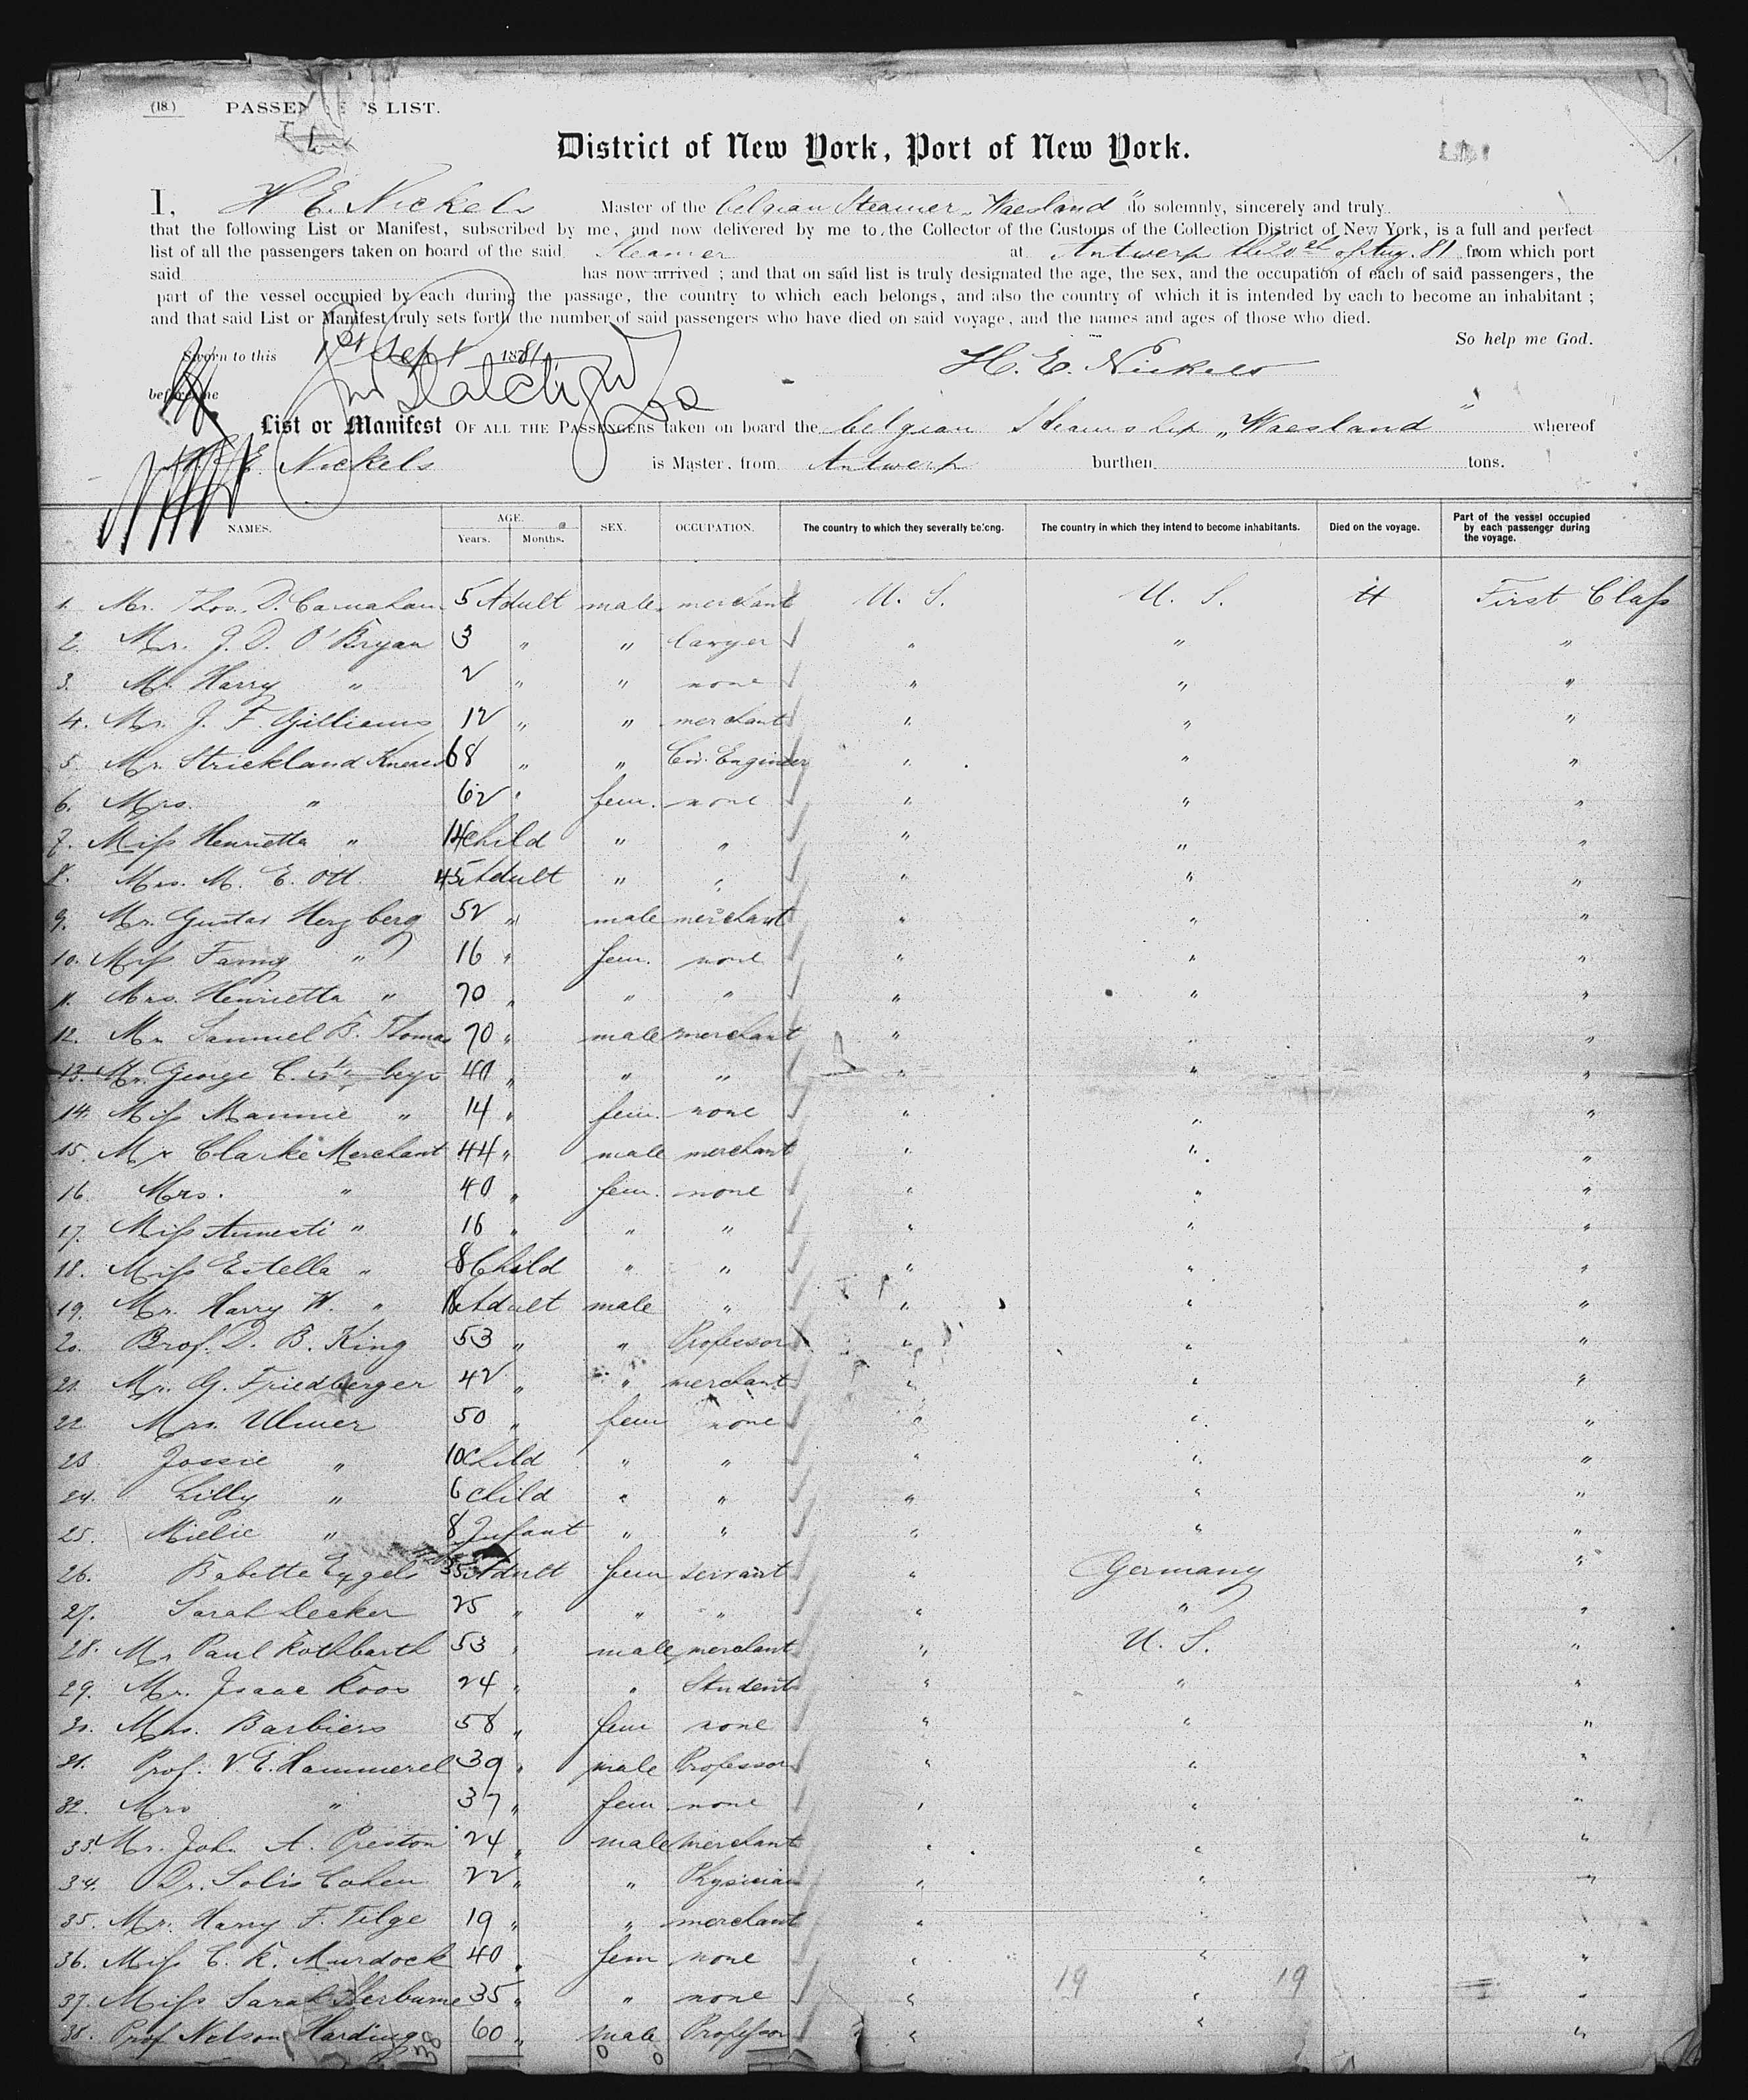 (18) PASSEN 'S LIST.
District of New York, Port of New York.
I, H E. Nickels Master of the belgian Steamer „Waesland" do solemnly, sincerely and truly
that the following List or Manifest, subscribed by me, and now delivered by me to the Collector of the Customs of the Collection District of New York, is a full and perfect
list of all the passengers taken on board of the said Steamer at Antwerp the 20th of Aug. 81 from which port
said has now arrived ; and that on said list is truly designated the age, the sex, and the occupation of each of said passengers, the
part of the vessel occupied by each during the passage, the country to which each belongs, and also the country of which it is intended by each to become an inhabitant ;
and that said List or Manifest truly sets forth the number of said passengers who have died on said voyage, and the names and ages of those who died.
So help me God.
Sworn to this 1st Sept 1881
H. E. Nickels
before me
List or Manifest OF ALL THE PASSENGERS taken on board the belgian Steamship „Waesland" whereof
H. E. Nickels is Master, from Antwerp burthen tons.
NAMES. AGE. Years. Months. SEX. OCCUPATION. The country to which they severally belong. The country in which they intend to become inhabitants. Died on the voyage. Part of the vessel occupied by each passenger during the voyage.
1. Mr. Thos. D. Carnahan 5 Adult male merchant U. S. U. S. First Class
2. Mr. J. D. O'Bryan 3 " " lawyer " " "
3. Mr. Harry " 2 " " none " " "
4. Mr. J. F. Gilliams 12 " " merchant " " "
5. Mr. Strickland 68 " " Civ. Engineer " " "
6. Mrs. " 62 " fem. none " " "
7. Miss Henrietta " 14 Child " " " " "
8. Mrs. M. E. Ott 45 Adult " " " " "
9. Mr. Gustav Herzberg 52 " male merchant " " "
10. Miss Fanny " 16 " fem. none " " "
11. Mrs. Henrietta " 70 " " " " " "
12. Mr. Samuel B. Thomas 70 " male merchant " " "
13. Mr. George C. 40 " " " " " "
14. Miss Mannie " 14 " fem. none " " "
15. Mr Clarke Merchant 44 " male merchant " " "
16. Mrs. " 40 " fem. none " " "
17. Miss " 16 " " " " " "
18. Miss Estella " 8 Child " " " " "
19. Mr. Harry W. " Adult male " " " "
20. Prof. D. B. King 53 " " Professor " " "
21. Mr. G. Friedberger 42 " " merchant " " "
22. Mrs. Ulmer 50 " fem none " " "
23 Jossie " 10 Child " " " " "
24. Lilly " 6 child " " " " "
25. Millie " 8 Infant " " " " "
26. Babette Eygels 35 Adult fem servant " Germany "
27. Sarah Decker 25 " " " " " "
28. Mr Paul Rothbarth 53 " male merchant " U. S. "
29. Mr. Isaac Koos 24 " " Student " " "
30. Mrs. Barbiers 58 " fem none " " "
31. Prof. V. E. Hammerel 39 " male Professor " " "
32. Mrs " 37 " fem none " " "
33. Mr. John A. Preston 24 " male merchant " " "
34. Dr. Solis Cohen 22 " " Physician " " "
35. Mr. Harry F. Tilge 19 " " merchant " " "
36. Miss C. K. Murdock 40 " fem none " " "
37. Miss Sarah 35 " " none " " "
19 19
38. Prof Nelson Harding 60 " male Professor " " "
38